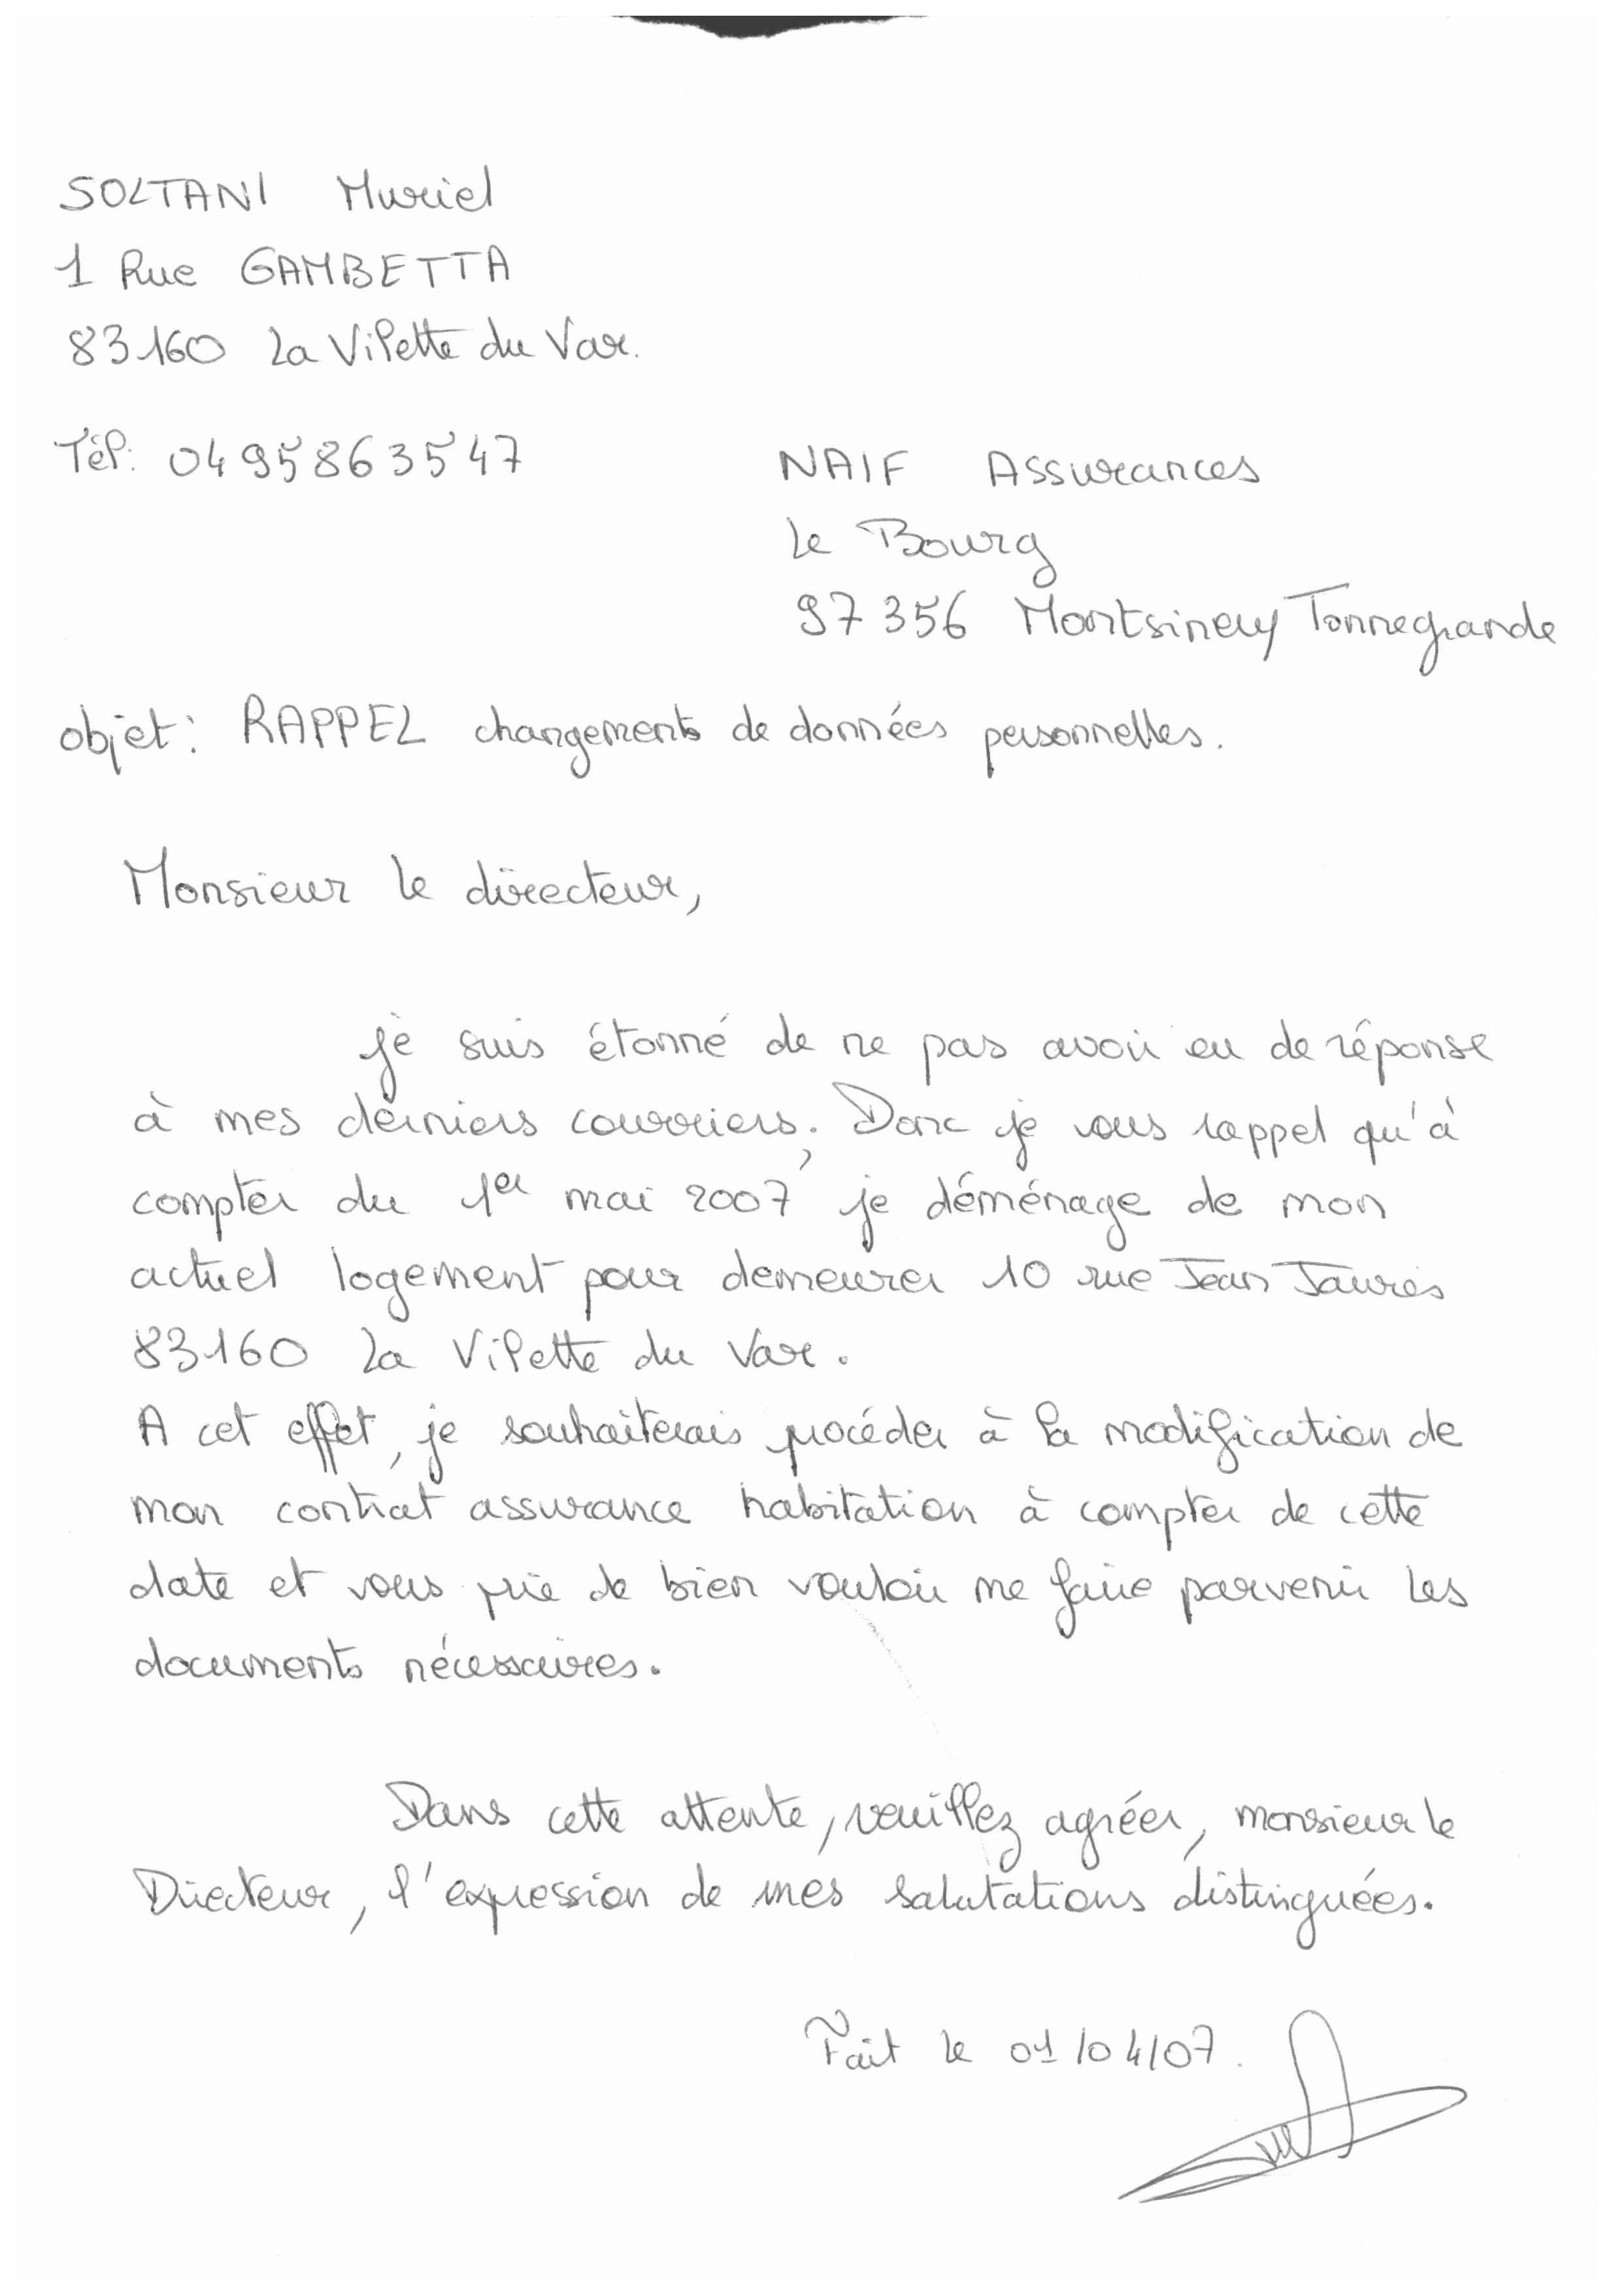 SOLTANI Muriel
1 Rue GAMBETTA
83160 La Vilette du Var.
Tél: 0495863547
NAIF Assurances
Le Bourg
97356 Montsinery Tonnegrande
objet: RAPPEL changements de données personnelles.
Monsieur le directeur,
je suis étonné de ne pas avoir eu de réponse
à mes derniers courriers. Donc je vous rappel qu'à
compter du 1er mai 2007, je déménage de mon
actuel logement pour demeurer 10 rue Jean Jaurès
83160 La Vilette du Var.
A cet effet, je souhaiterais procéder à la modification de
mon contrat assurance habitation à compter de cette
date et vous prie de bien vouloir me faire parvenir les
documents nécessaires.
Dans cette attente, veuillez agréer, monsieur le
Directeur, l'expression de mes salutations distinguées.
Fait le 01/04/07.